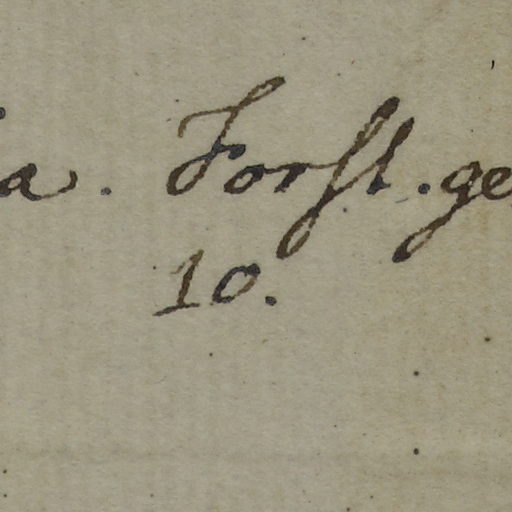 a. Forſt. ge
10.